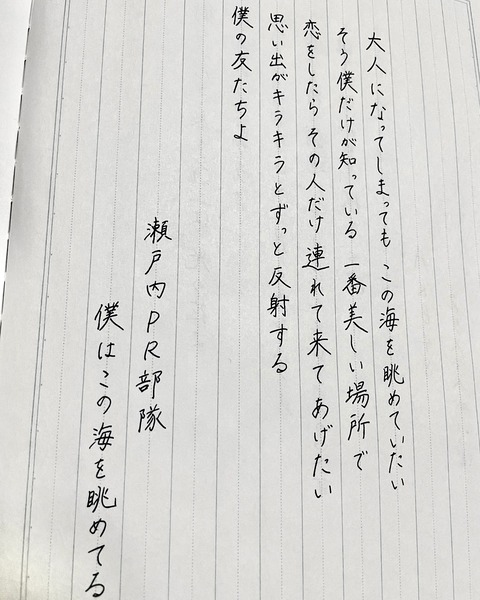 大人になってしまっても この海を眺めていたい
そう僕だけが知っている 一番美しい場所で
恋をしたら その人だけ 連れて来て あげたい
思い出がキラキラとずっと反射する
僕の友たちよ
瀬戸内PR部隊
僕はこの海を眺めてる